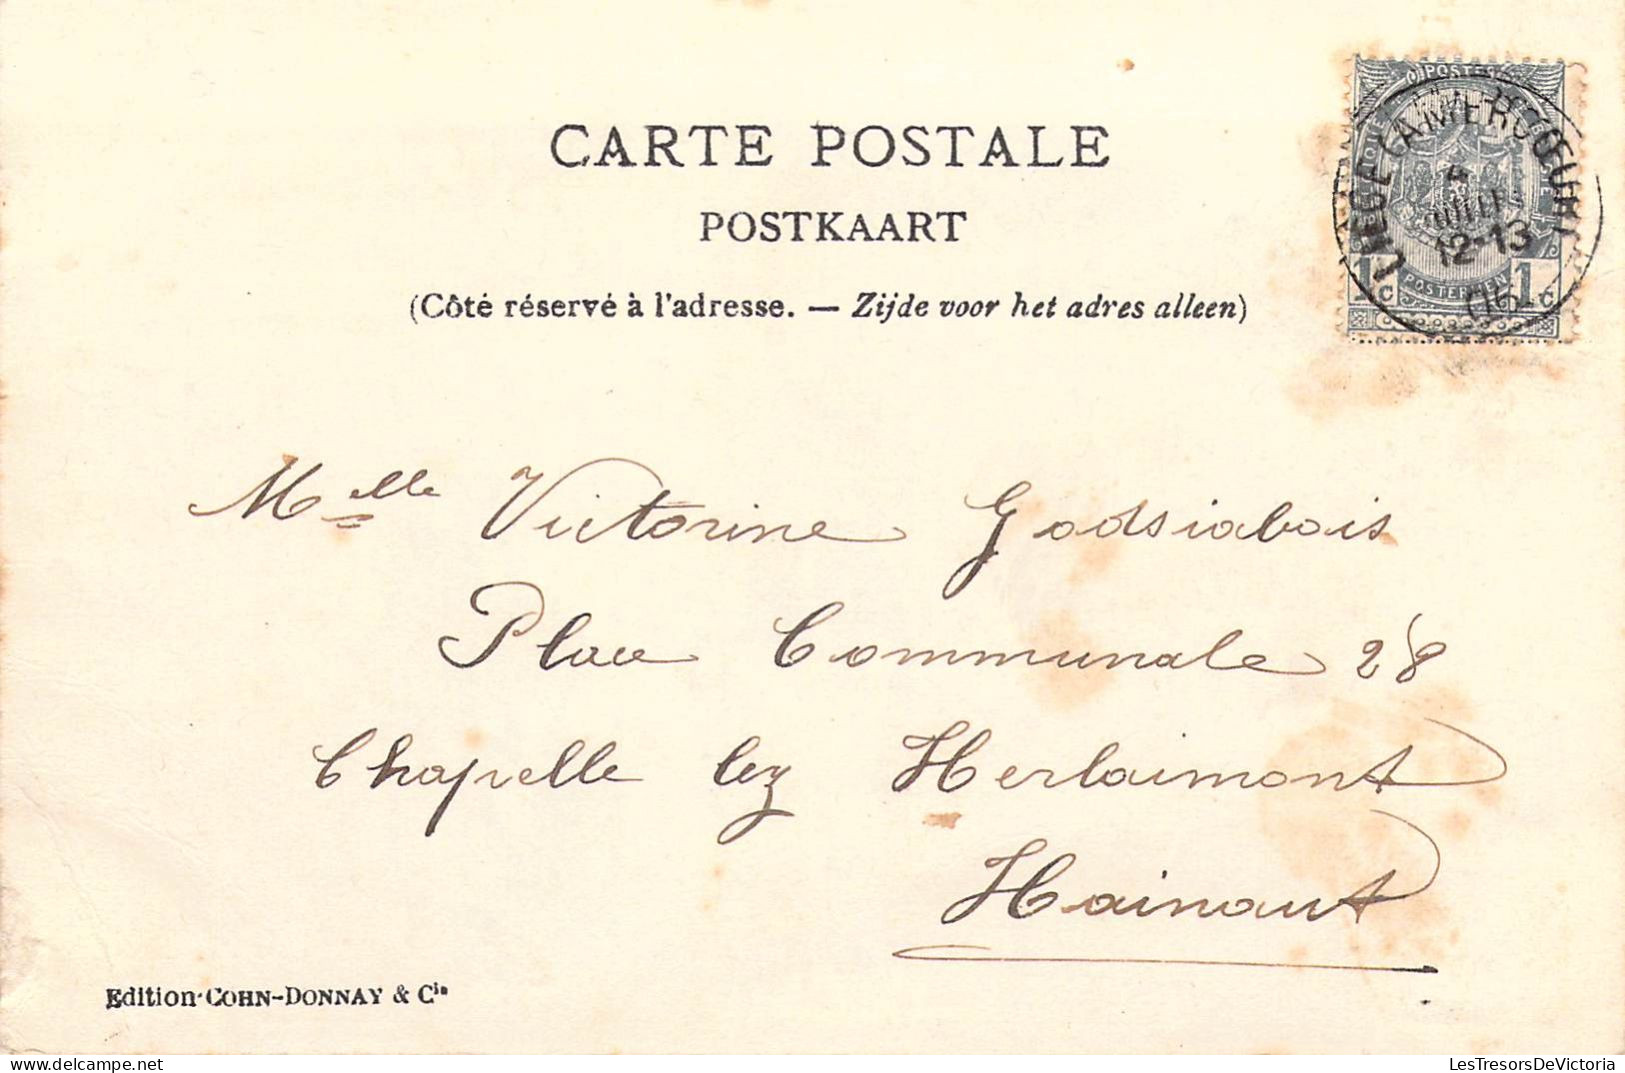 CARTE POSTALE
POSTKAART
(Côté réservé à l'adresse. — Zijde voor het adres alleen)
POSTES
1 C POSTERIJEN 1 C
12-13
06
Melle Victorine Godsiabois
Place Communale 28
Chapelle lez Herlaimont
Hainaut
Edition COHN-DONNAY & Cie
LesTresorsDeVictoria